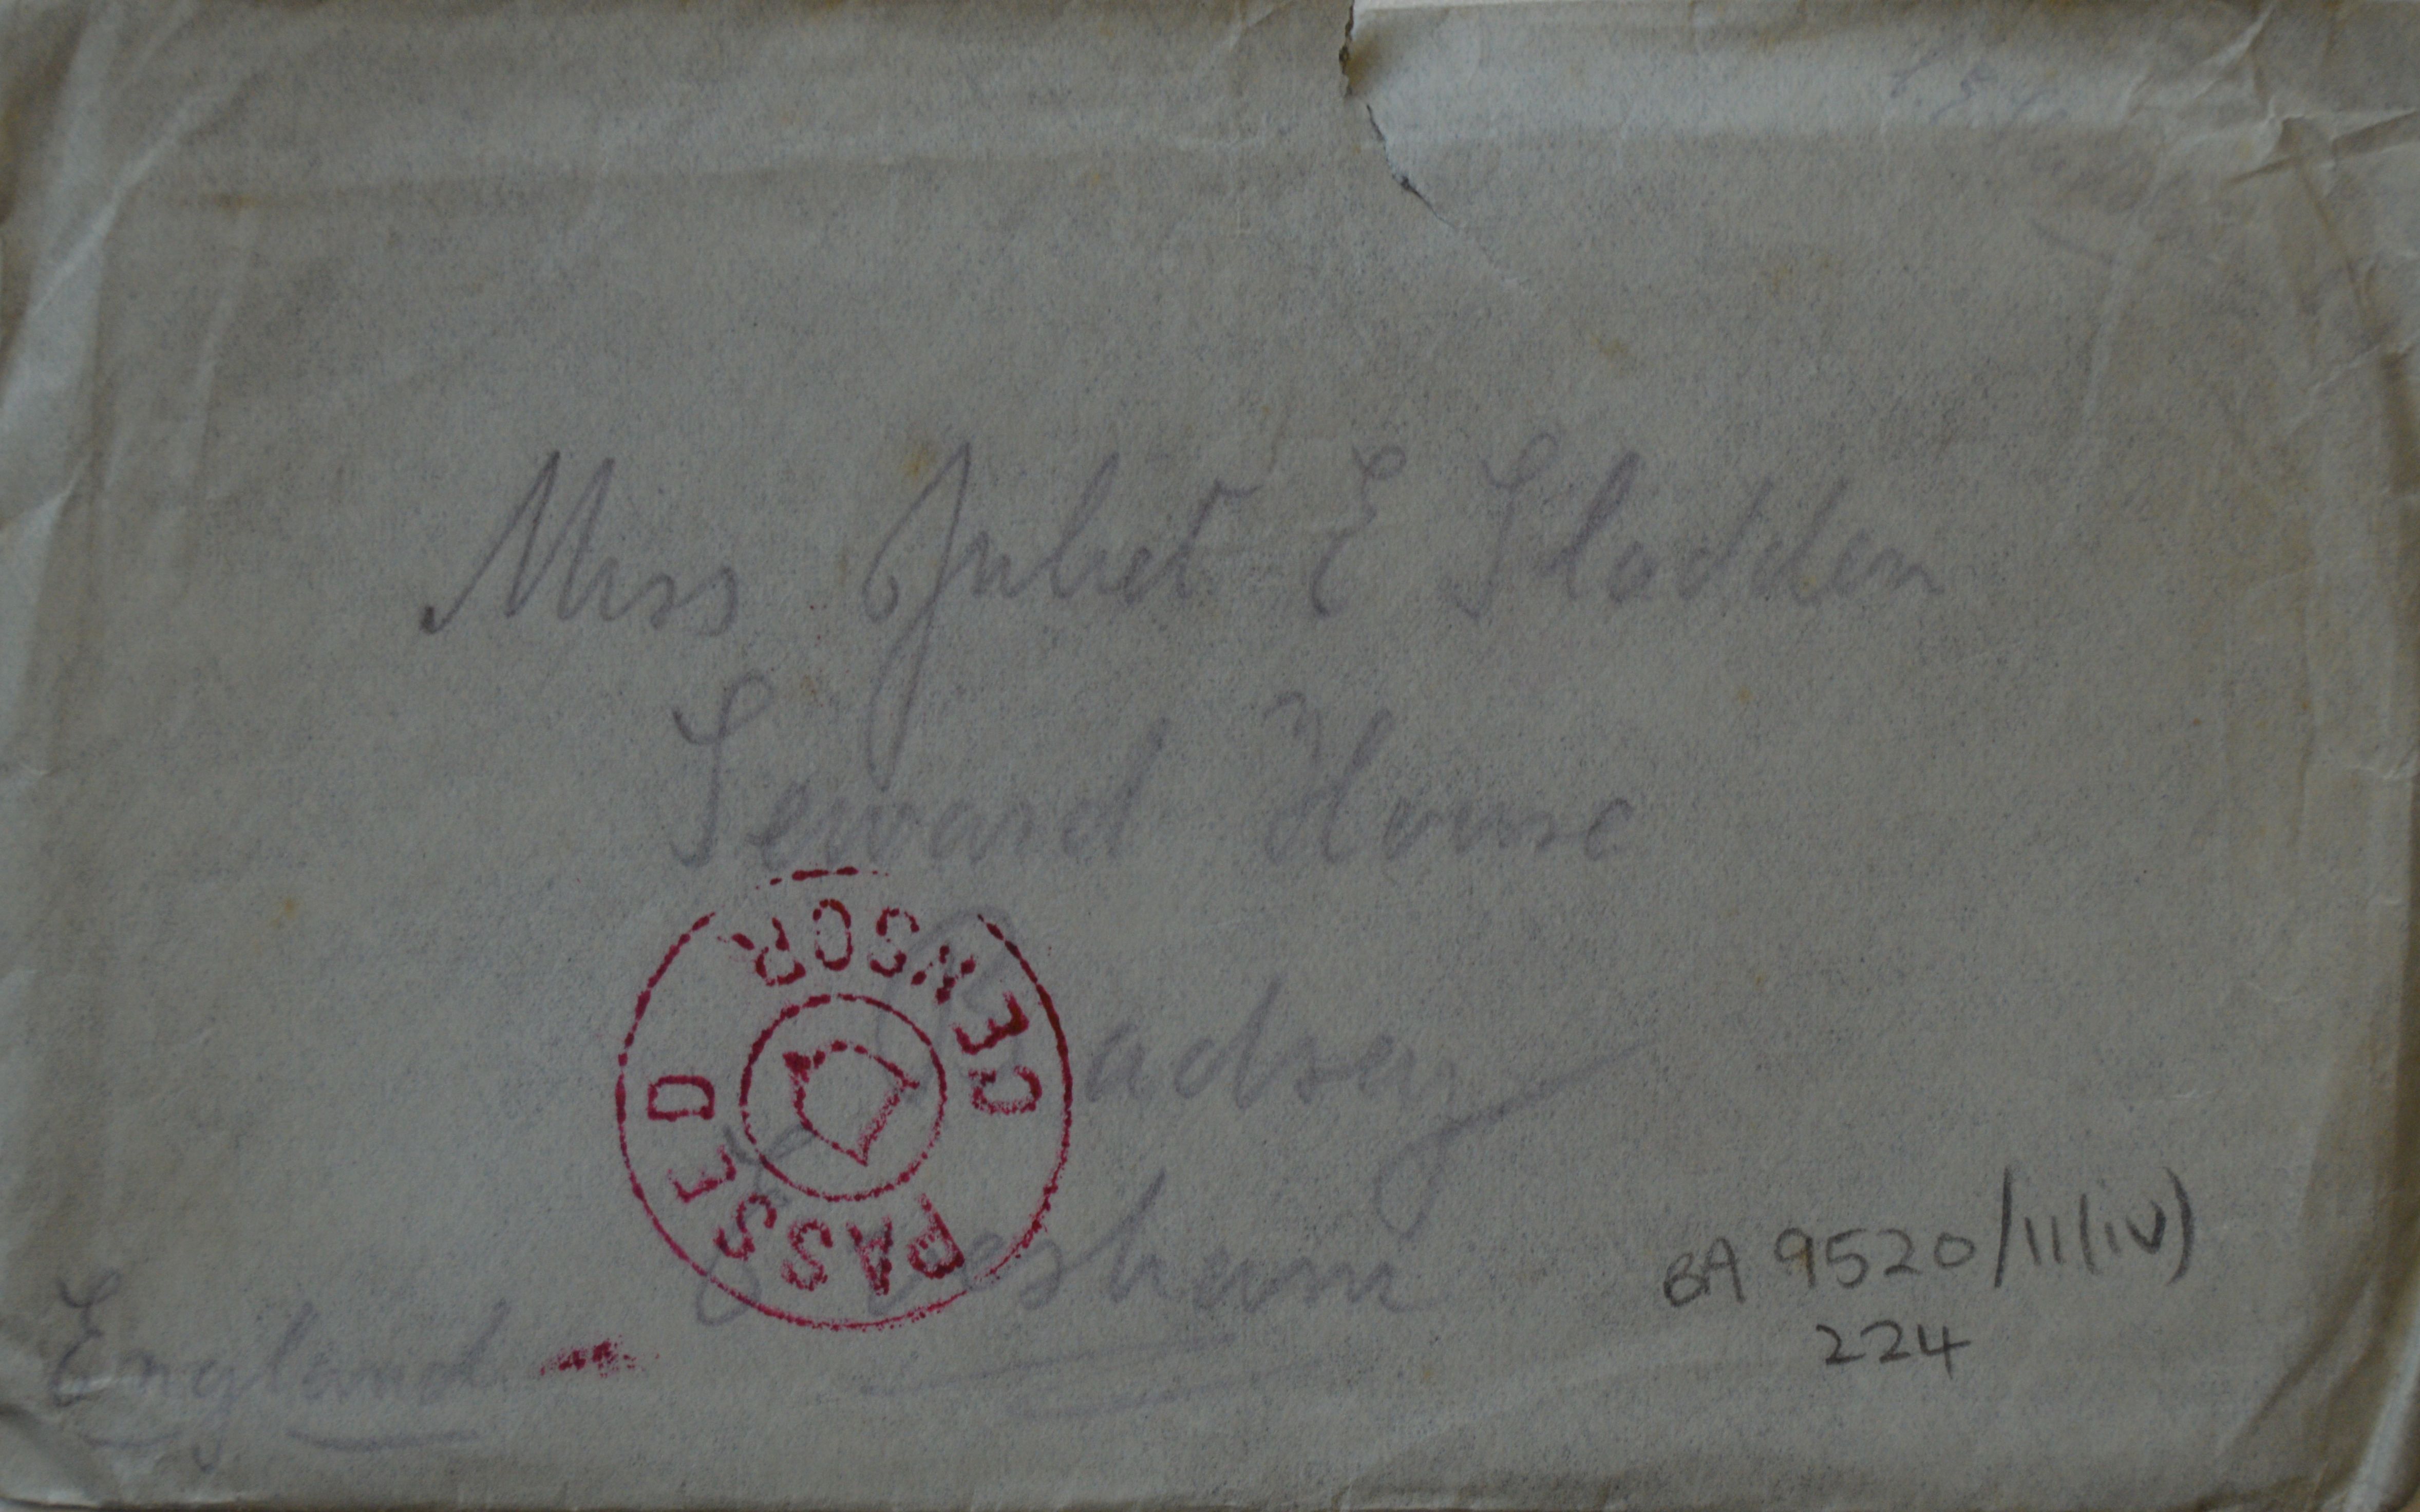 Miss Juliet E Sladden
Seward House
Badsey
Evesham
England
PASSED CENSOR
BA 9520/11(iv)
224